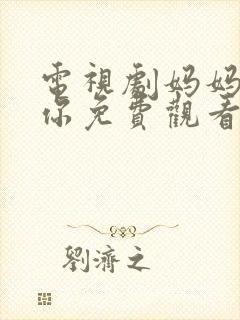 電視劇妈妈
你免費觀看
劉濟之